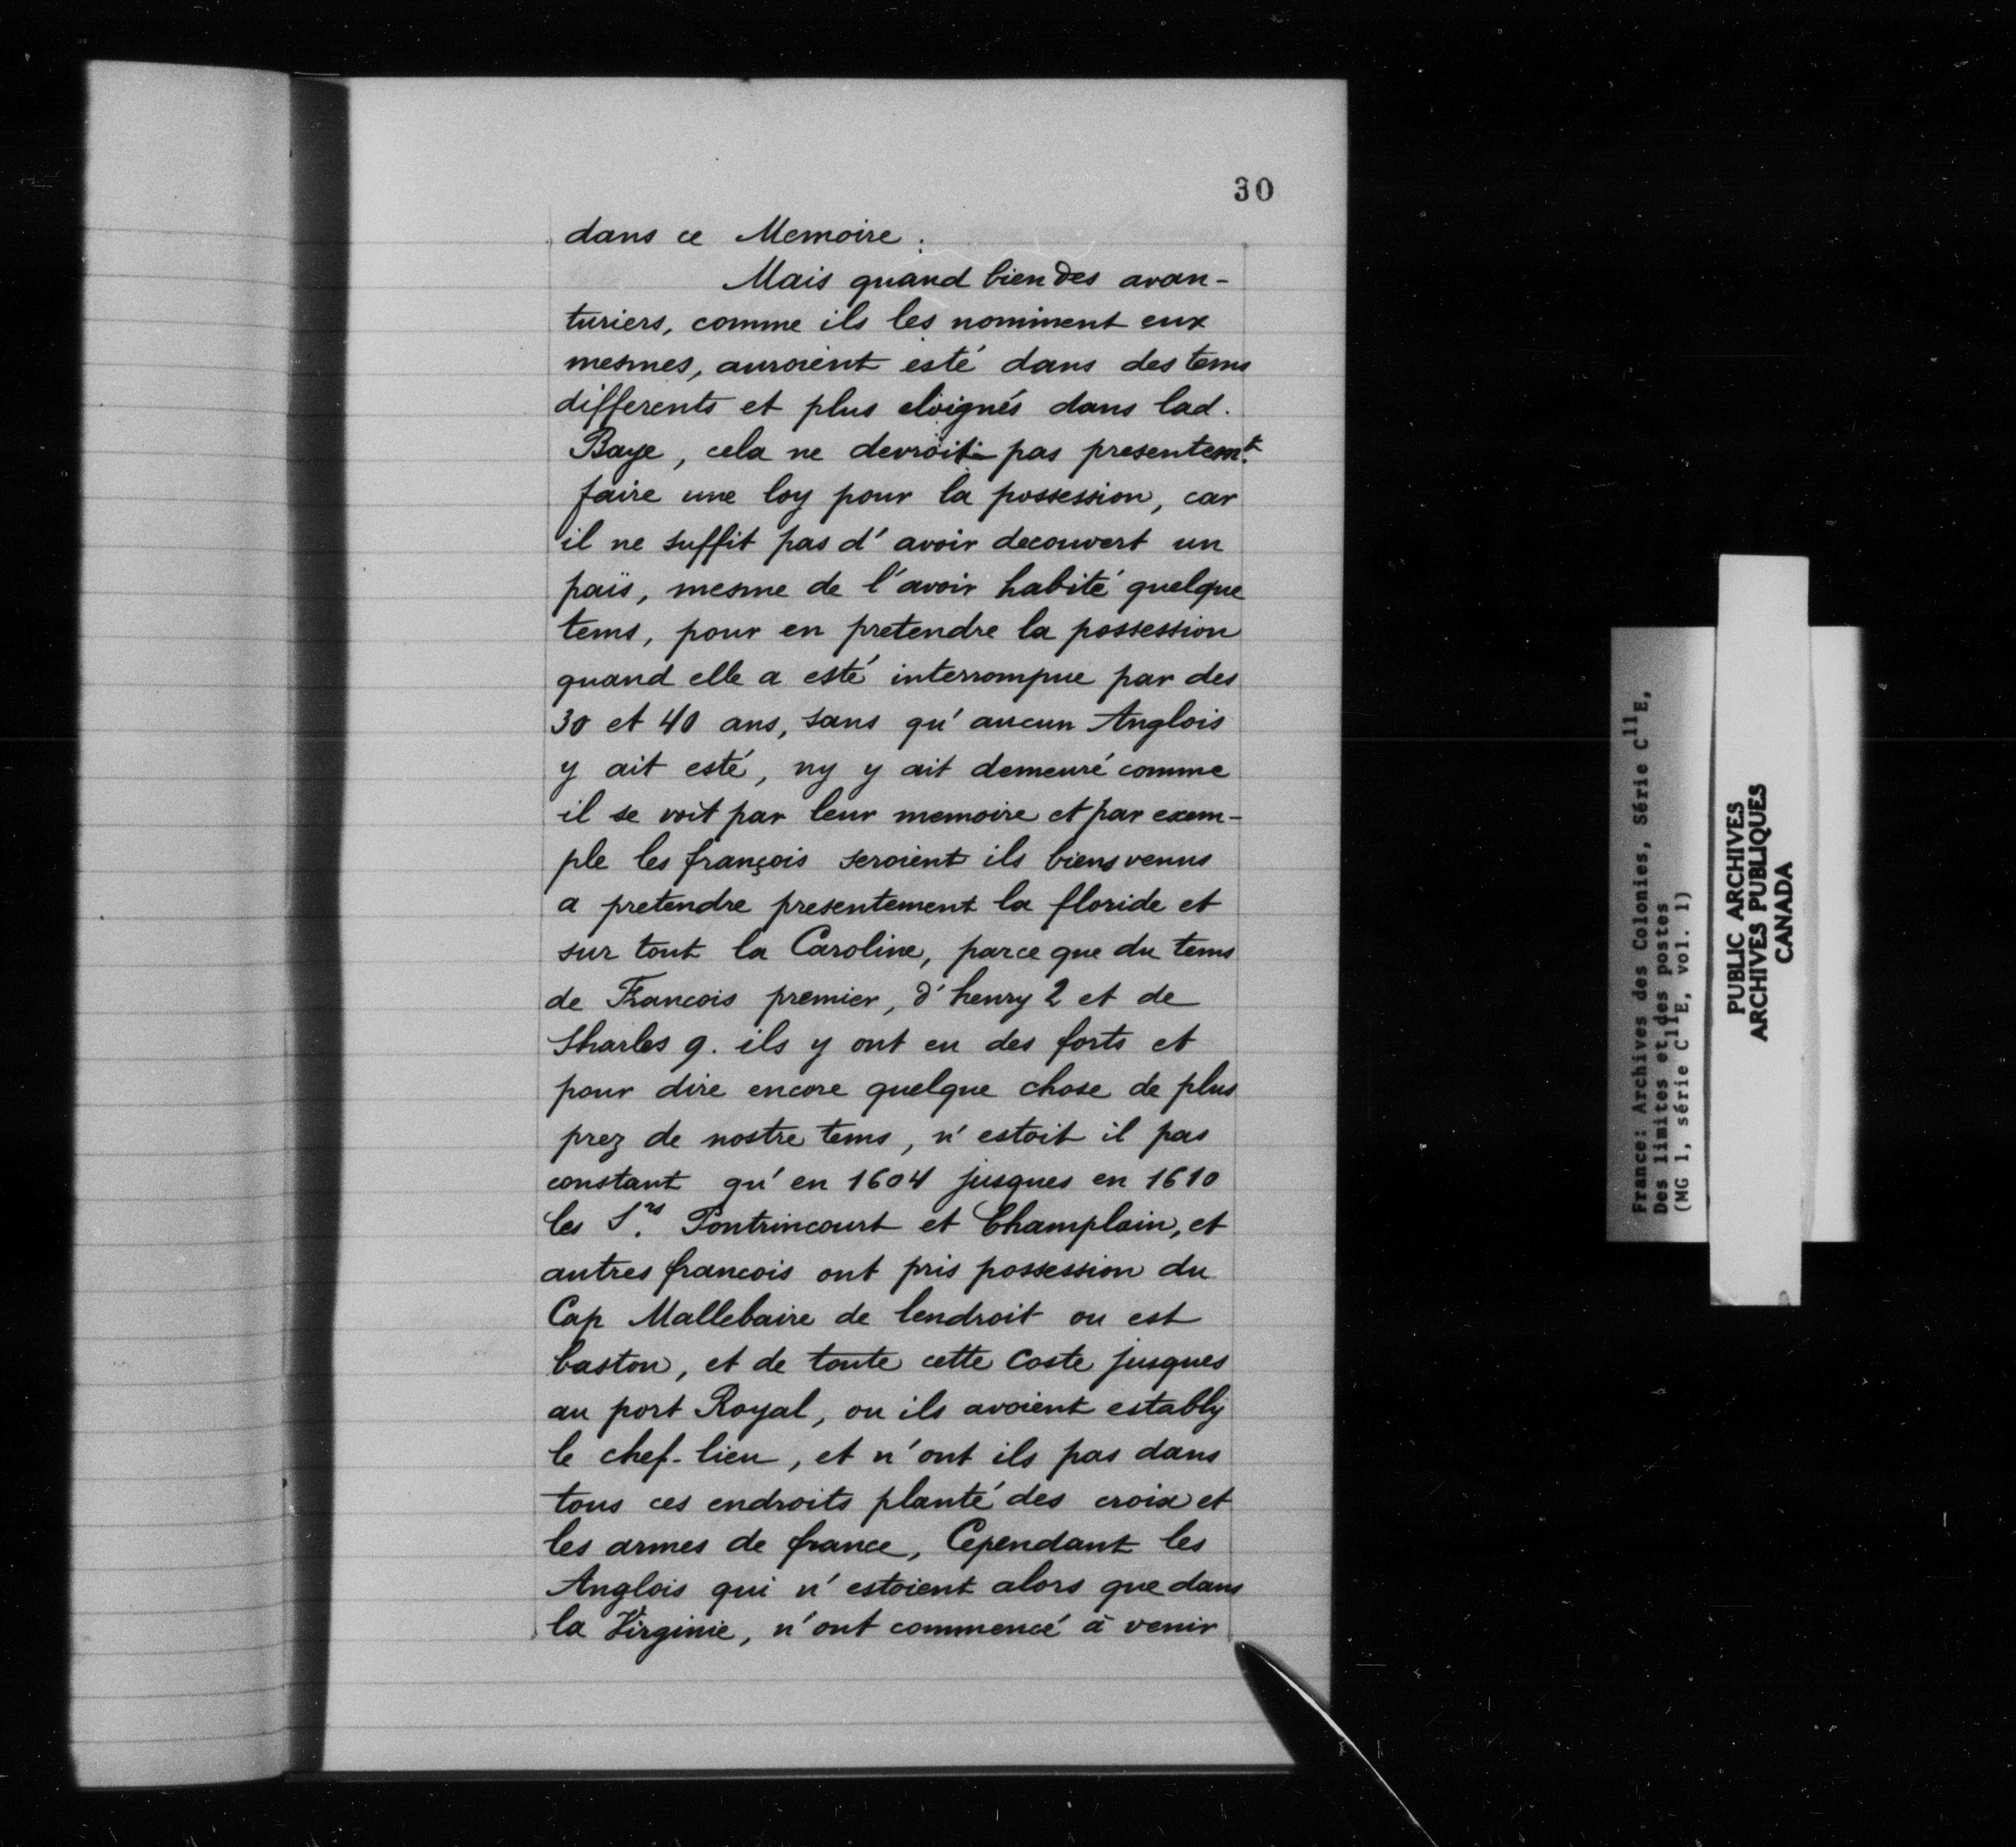 30
dans ce Memoire.
Mais quand bien des avan-
turiers, comme ils les nomment eux
mesmes, auroient esté dans des tems
differents et plus eloignés dans lad.
Baye, cela ne devroit pas presentemt.
faire une loy pour la possession, car
il ne suffit pas d'avoir decouvert un
païs, mesme de l'avoir habité quelque
tems, pour en pretendre la possession
quand elle a esté interrompue par des
30 et 40 ans, sans qu'aucun Anglois
y ait esté, ny y ait demeuré comme
il se voit par leur memoire et par exem-
ple les françois seroient ils biens venus
a pretendre presentement la floride et
sur tout la Caroline, parce que du tems
de Francois premier, d'henry 2 et de
Sharles 9. ils y ont eu des forts et
pour dire encore quelque chose de plus
prez de nostre tems, n'estoit il pas
constant qu'en 1604 jusques en 1610
les Srs. Pontrincourt et Champlain, et
autres francois ont pris possession du
Cap Mallebaire de lendroit ou est
baston, et de toute cette Coste jusques
au port Royal, ou ils avoient estably
le chef-lieu, et n'ont ils pas dans
tous ces endroits planté des croix et
les armes de france, Cependant les
Anglois qui n'estoient alors que dans
la Virginie, n'ont commencé à venir
France: Archives des Colonies, Série C11E,
Des limites et des postes
(MG 1, série C11E, vol. 1)
PUBLIC ARCHIVES
ARCHIVES PUBLIQUES
CANADA